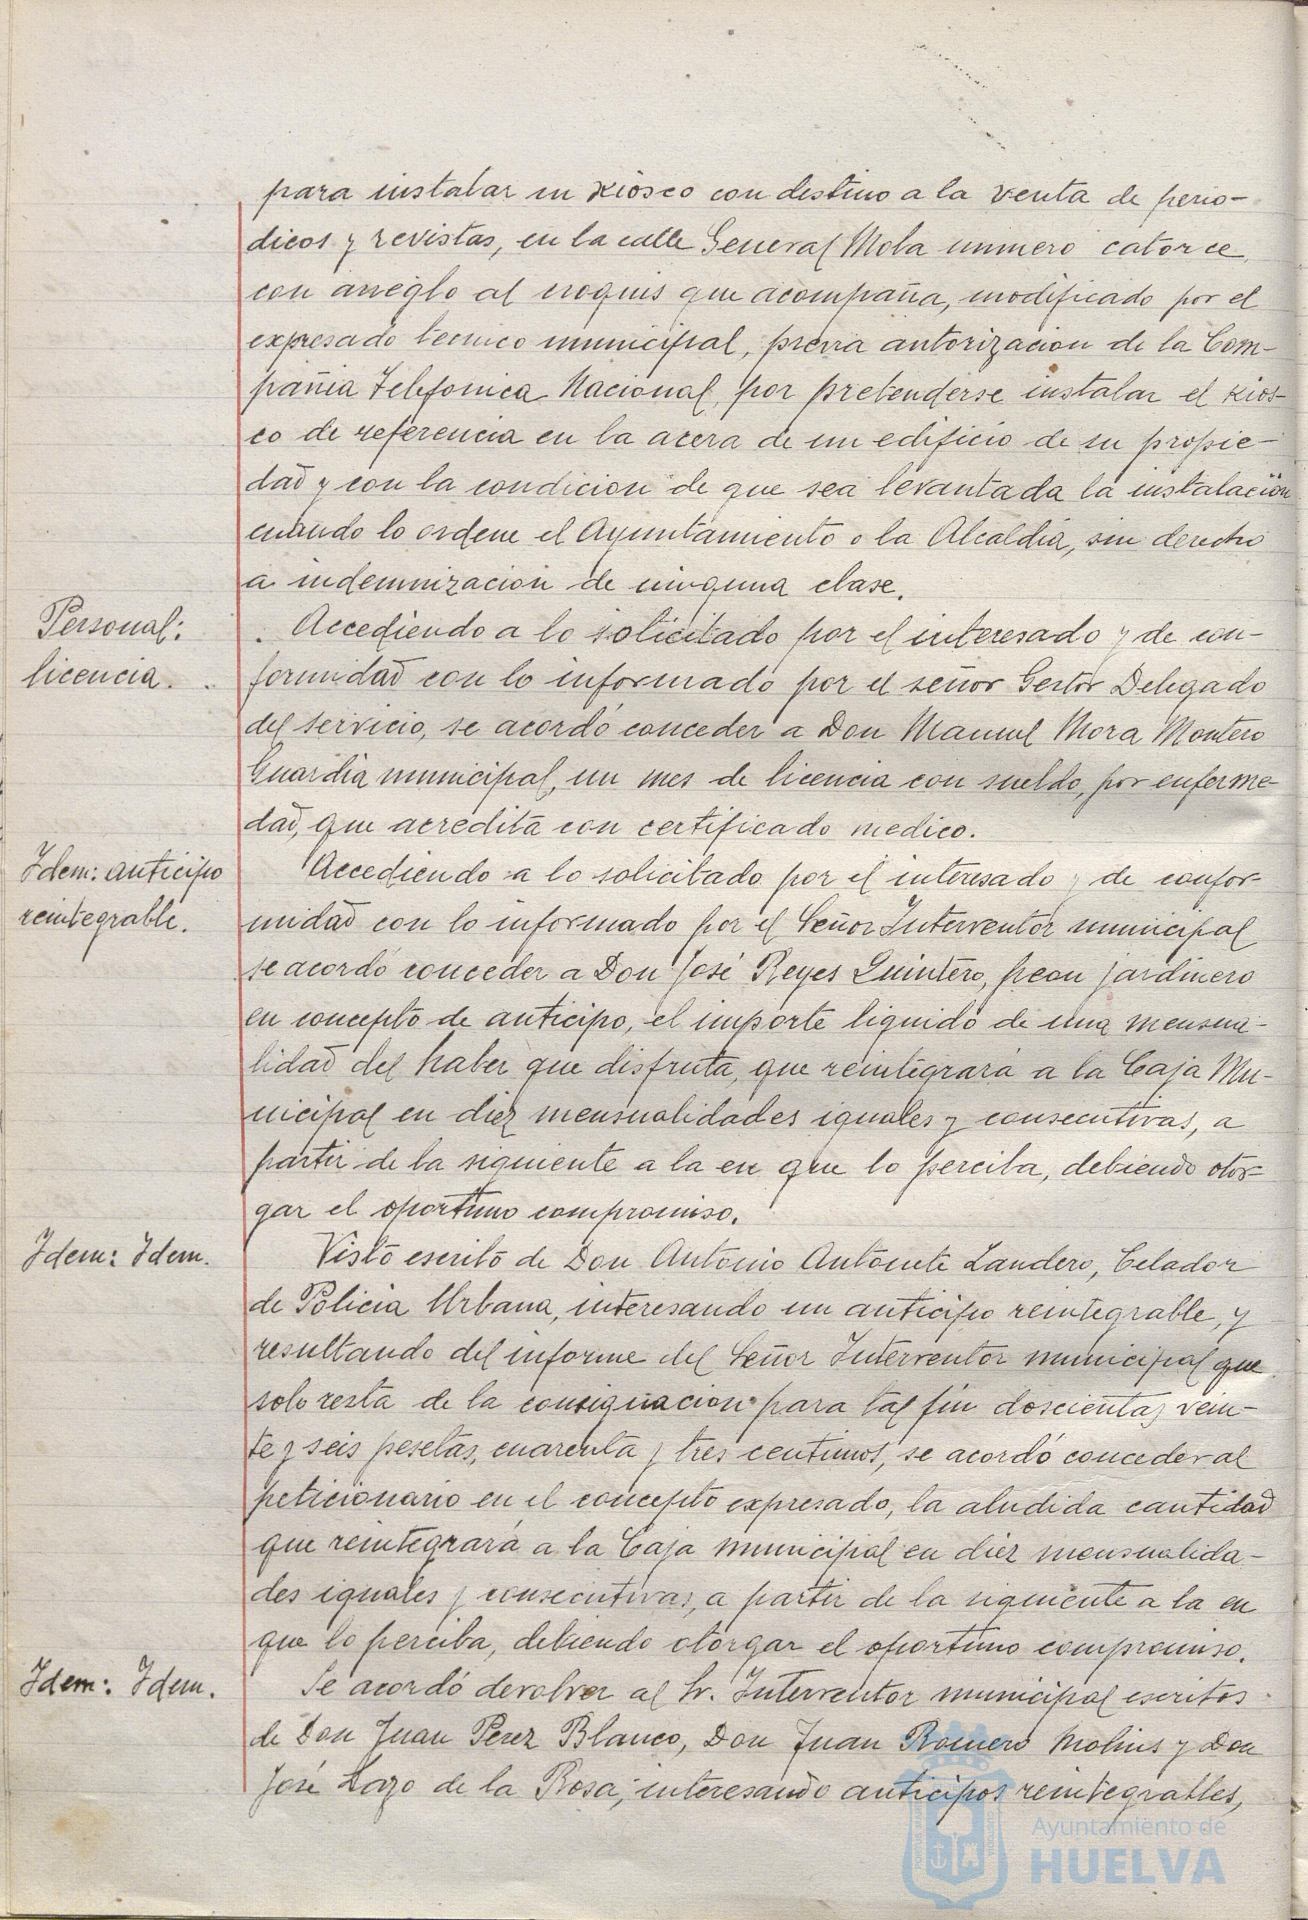 para instalar un kiosco con destino a la venta de perio-
dicos y revistas, en la calle General Mola numero catorce
con arreglo al croquis que acompaña, modificado por el
expresado tecnico municipal, previa autorizacion de la Com-
pañia Telefonica Nacional, por pretenderse instalar el kios-
co de referencia en la acera de un edificio de su propie-
dad y con la condicion de que sea levantada la instalación
cuando lo ordene el Ayuntamiento o la Alcaldia, sin derecho
a indemnizacion de ninguna clase.
Personal:
licencia.
Accediendo a lo solicitado por el interesado y de con-
formidad con lo informado por el señor Gestor Delegado
del servicio, se acordó conceder a Don Manuel Mora Montero
Guardia municipal, un mes de licencia con sueldo, por enferme-
dad, que acredita con certificado medico.
Idem: anticipo
reintegrable.
Accediendo a lo solicitado por el interesado y de confor-
midad con lo informado por el Señor Interventor municipal
se acordó conceder a Don José Reyes Quintero, peon jardinero
en concepto de anticipo, el importe liquido de una mensua-
lidad del haber que disfruta, que reintegrará a la Caja Mu-
nicipal en diez mensualidades iguales y consecutivas, a
partir de la siguiente a la en que lo perciba, debiendo otor-
gar el oportuno compromiso.
Idem: Idem.
Visto escrito de Don Antonio Antúnte Landero, Celador
de Policia Urbana, interesando un anticipo reintegrable, y
resultando del informe del Señor Interventor municipal que
solo resta de la consignacion para tal fin doscientas vein-
te y seis pesetas, cuarenta y tres centimos, se acordó conceder al
peticionario en el concepto expresado, la aludida cantidad
que reintegrará a la Caja municipal en diez mensualida-
des iguales y consecutivas, a partir de la siguiente a la en
que lo perciba, debiendo otorgar el oportuno compromiso.
Idem: Idem.
Se acordó devolver al Sr. Interventor municipal escritos
de Don Juan Perez Blanco, Don Juan Romero Molins y Don
José Lazo de la Rosa, interesando anticipos reintegrables,
Ayuntamiento de
HUELVA